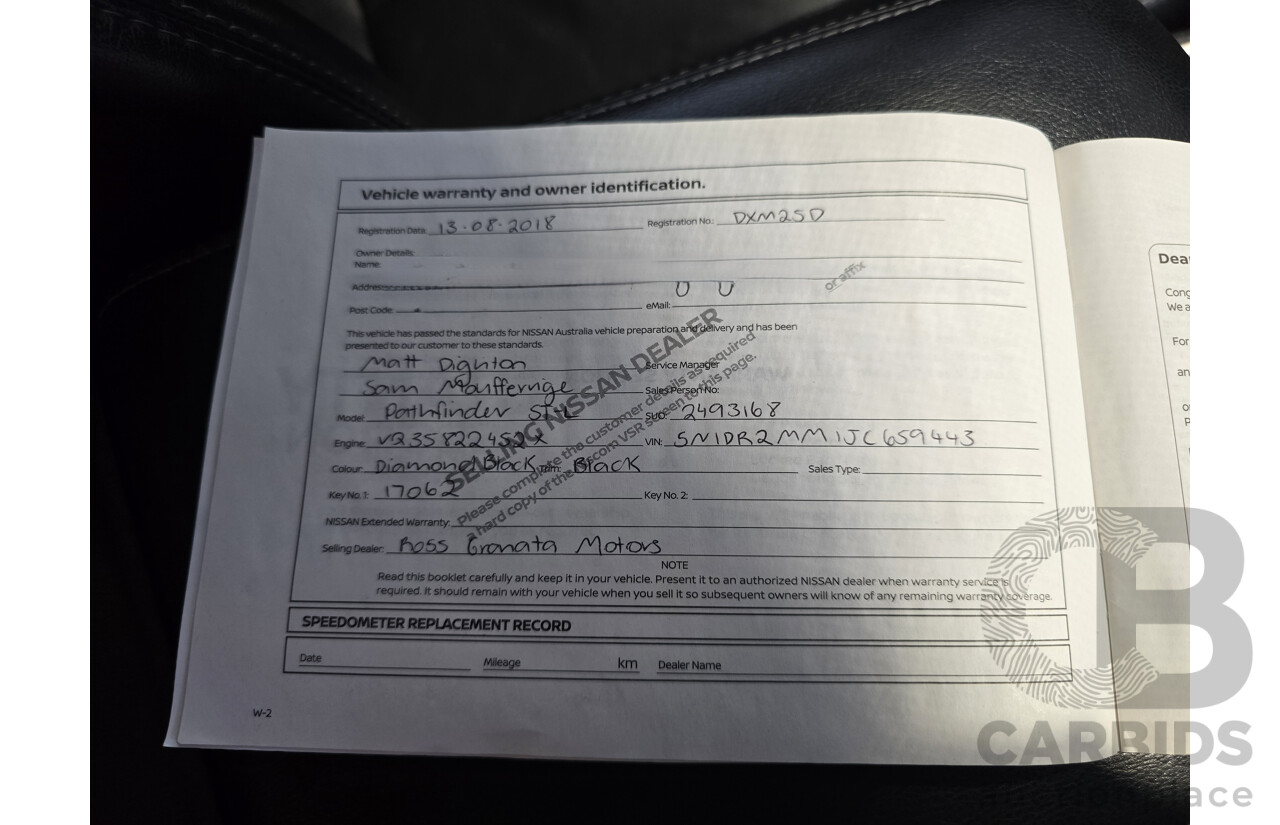 Vehicle warranty and owner identification.
Registration Date: 13.08.2018 Registration No.: DXM25D
Owner Details:
Name:
Address:
Post Code: eMail:
or affix
This vehicle has passed the standards for NISSAN Australia vehicle preparation and delivery and has been
presented to our customer to these standards.
SELLING NISSAN DEALER
Please complete the customer details as required
a hard copy of the Discom VSR screen to this page.
Matt Dighton Service Manager
Sam Sales Person No:
Model: Pathfinder St-L SUO: 2493168
Engine: VQ35822452X VIN: 5N1DR2MM1JC659443
Colour: Diamond Black Trim: Black Sales Type:
Key No. 1: 17062 Key No. 2:
NISSAN Extended Warranty:
Selling Dealer: Ross Granata Motors
NOTE
Read this booklet carefully and keep it in your vehicle. Present it to an authorized NISSAN dealer when warranty service is
required. It should remain with your vehicle when you sell it so subsequent owners will know of any remaining warranty coverage.
SPEEDOMETER REPLACEMENT RECORD
Date Mileage km Dealer Name
W-2
Dea
Cong
We a
For
an
CB
CARBIDS